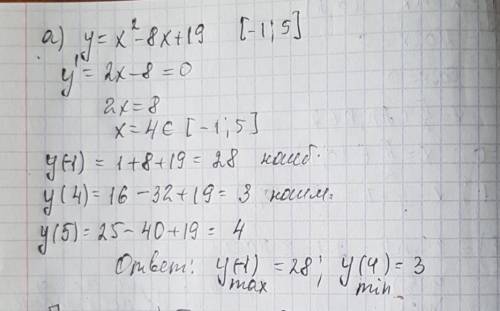 а) y = x² - 8x + 19   [-1; 5]
y' = 2x - 8 = 0
2x = 8
x = 4 ∈ [-1; 5]
y(-1) = 1 + 8 + 19 = 28 наиб.
y(4) = 16 - 32 + 19 = 3 наим.
y(5) = 25 - 40 + 19 = 4
Ответ: y(-1) = 28; y(4) = 3
max min